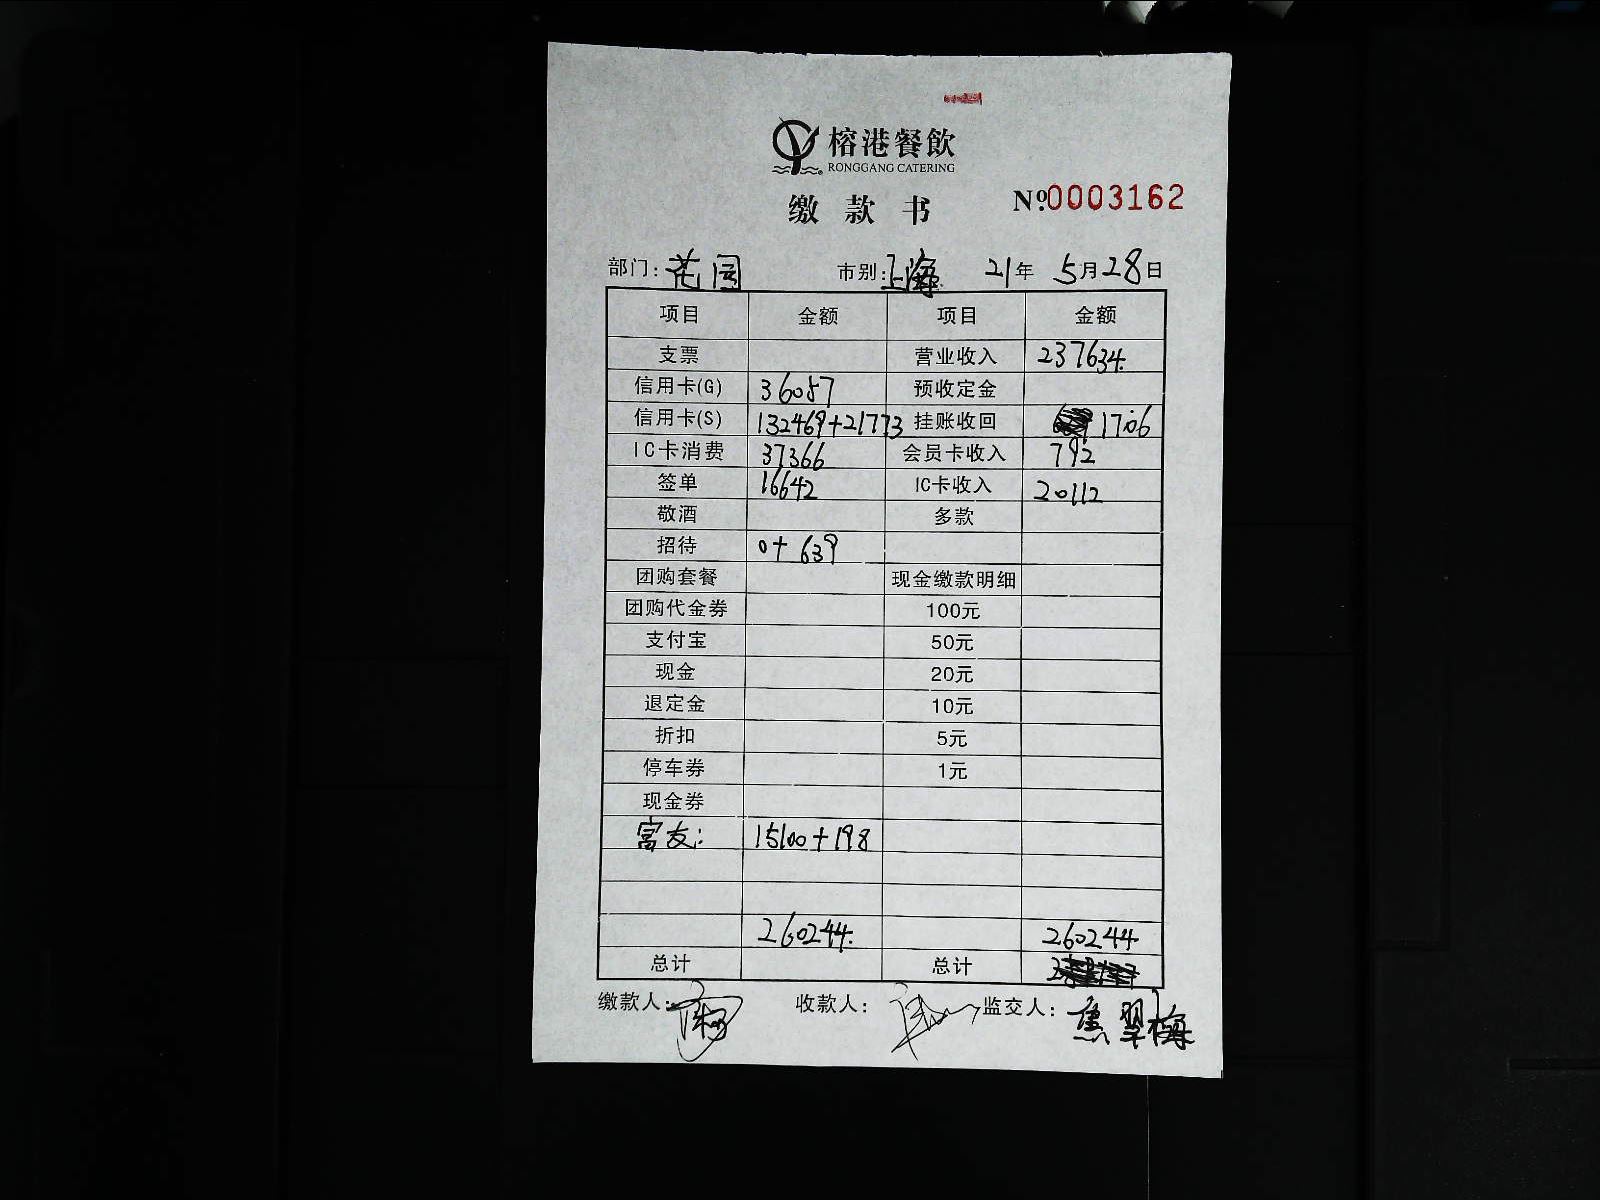 榕港餐飲
RONGGANG CATERING
缴款书 No.0003162
部门:花园 市别:上海 21年 5月28日
项目 金额 项目 金额
支票 营业收入 237634.
信用卡(G) 36057 预收定金
信用卡(S) 132469+21773 挂账收回 1706
IC卡消费 37366 会员卡收入 792
签单 16642 IC卡收入 20112
敬酒 多款
招待 0+639
团购套餐 现金缴款明细
团购代金券 100元
支付宝 50元
现金 20元
退定金 10元
折扣 5元
停车券 1元
现金券
富友: 15100+198
260244. 260244
总计 总计
缴款人: 收款人: 监交人:焦翠梅